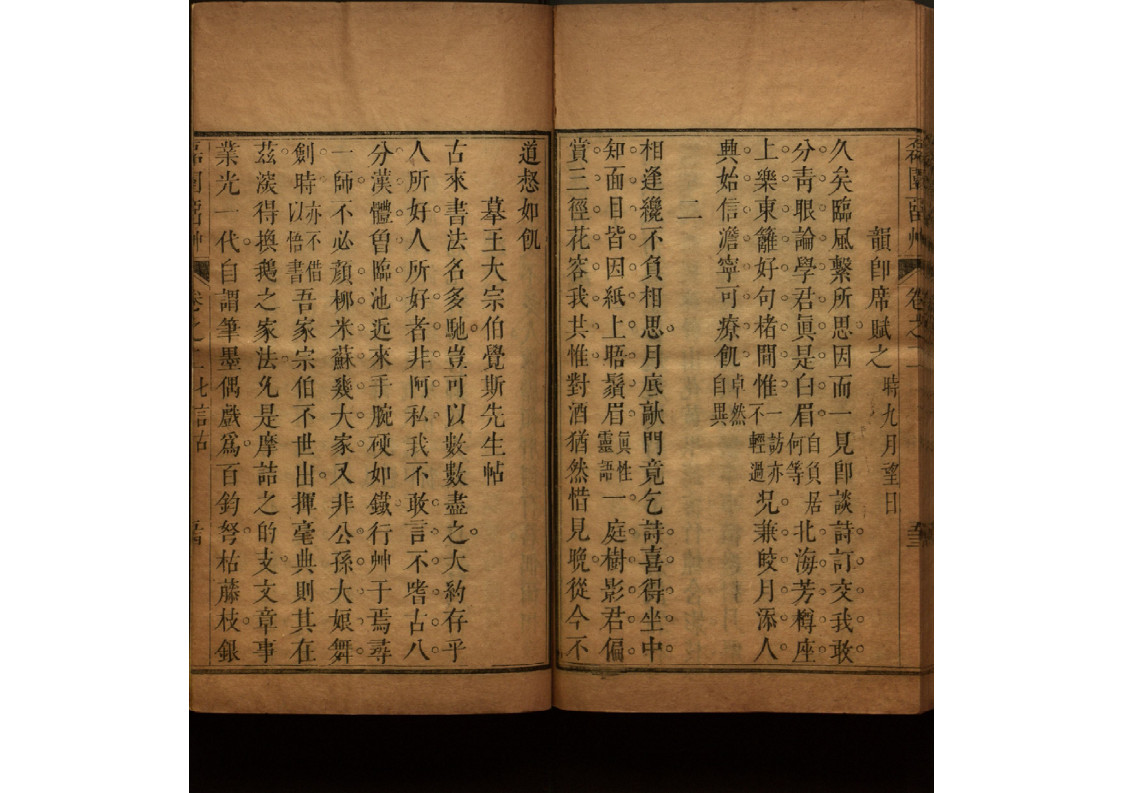 韻卽席賦之時九月望日
久矣臨風繫所思因而一見卽談詩訂交我敢
分靑眼論學君眞是白眉自負居何等北海芳樽座
上樂東籬好句楮間惟一訪亦不輕過况兼皎月添人
興始信澹寧可療飢卓然自異
二
相逢纔不負相思月底敲門竟乞詩喜得坐中
知面目皆因紙上晤鬚眉眞性靈語一庭樹影君偏
賞三徑花容我共惟對酒猶然惜見晚從今不
道惄如飢
摹王大宗伯覺斯先生帖
古來書法名多馳豈可以數數盡之大約存乎
人所好人所好者非阿私我不敢言不嗜古八
分漢體魯臨池近來手腕硬如鐵行艸于焉尋
一師不必顔柳米蘇幾大家又非公孫大娘舞
劍時亦不借以悟書吾家宗伯不世出揮毫典則其在
茲淡得換鵝之家法兊是摩詰之的支文章事
業光一代自謂筆墨偶戲爲百鈞弩枯藤枝銀